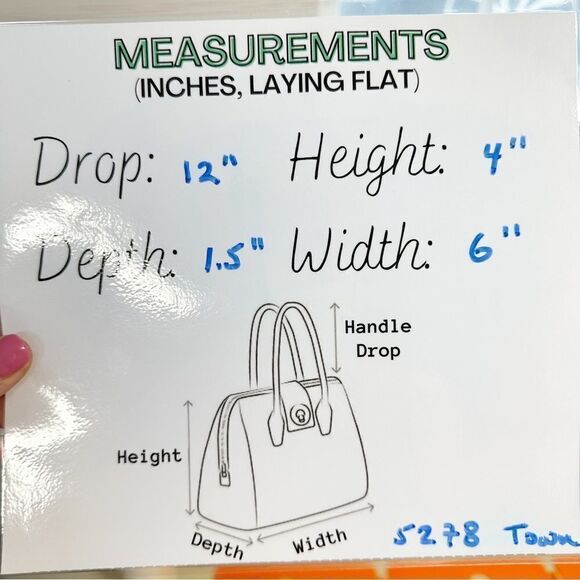 MEASUREMENTS
(INCHES, LAYING FLAT)
Drop: 12" Height: 4"
Depth: 1.5" Width: 6"
Handle
Drop
Height
Depth Width
5278 Town